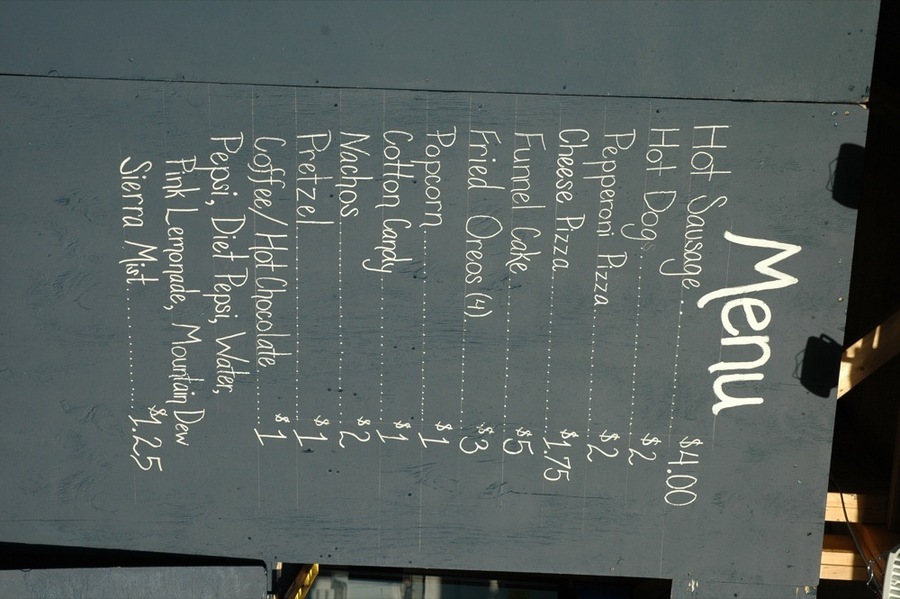 Menu
Hot Sausage $4.00
Hot Dogs $2
Pepperoni Pizza $2
Cheese Pizza $1.75
Funnel Cake $5
Fried Oreos (4) $3
Popcorn $1
Cotton Candy $1
Nachos $2
Pretzel $1
Coffee/Hot Chocolate $1
Pepsi, Diet Pepsi, Water,
Pink Lemonade, Mountain Dew
Sierra Mist $1.25